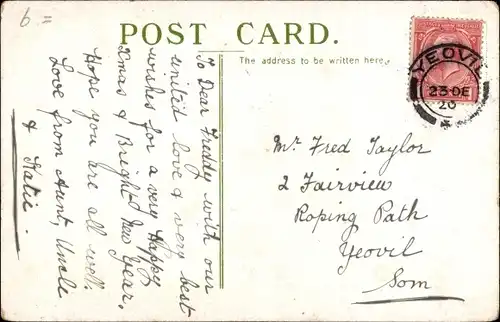 6 =
POST CARD.
The address to be written here.
To Dear Freddy with our
united love & very best
wishes for a very Happy
Xmas & Bright New Year.
Hope you are all well.
Love from Aunt, Uncle
& Katie.
YEOVIL
23 DE
20
Mr Fred Taylor
2 Fairview
Roping Path
Yeovil
Som